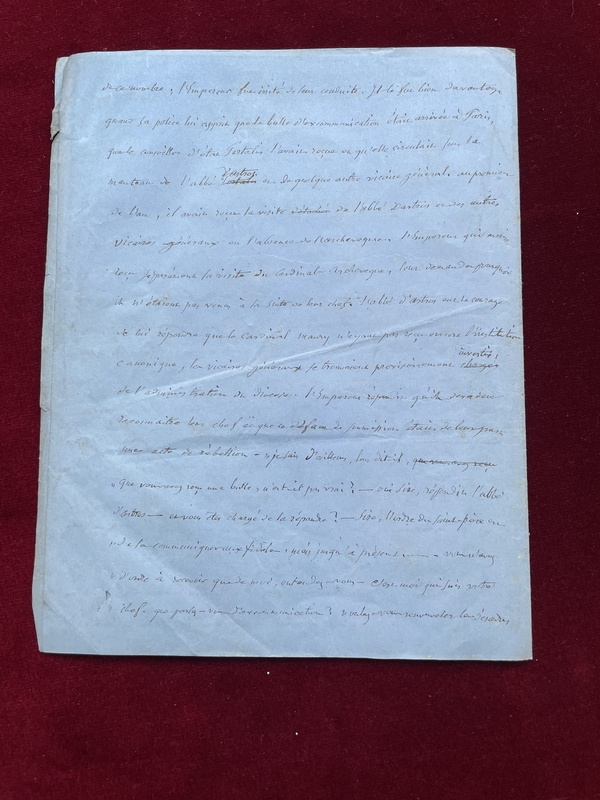 de ce nombre ; l'Empereur fut irrité de leur conduite. Il le fut bien davantage
quand sa police lui apprit que la bulle d'excommunication était arrivée à Paris,
que le conseiller d'état Portalis l'avait reçue et qu'elle circulait sous le
manteau de l'abbé d'astros et de quelque autre vicaire général. au premier
de l'an, il avait reçu la visite de l'abbé d'astros et des autres
vicaires généraux en l'absence de l'archevêque. l'Empereur qui avait
reçu la visite du Cardinal-Archevêque, leur demanda pourquoi
ils n'étaient pas venus à la suite de leur chef. l'abbé d'astros eut le courage
de lui répondre que le Cardinal maury n'ayant pas reçu encore l'institution
canonique, les vicaires généraux se trouvaient provisoirement investis,
de l'administration du diocèse. l'Empereur répondit qu'ils devaient
reconnaître leur chef et que ce défaut de soumission était de leur part
une acte de rébellion – « je sais d'ailleurs, leur dit-il,
« que vous avez reçu une bulle, n'est-il pas vrai ? – oui Sire, répondit l'abbé
d'astros – et vous êtes chargé de la répandre ? – Sire, l'ordre du Saint-père est
« de la communiquer aux fidèles ; mais jusqu'à présent – – vous n'avez
« d'ordre à recevoir que de moi, entendez-vous – c'est moi qui suis votre
« chef. que parlez-vous d'excommunication ? voulez-vous renouveler les désordres